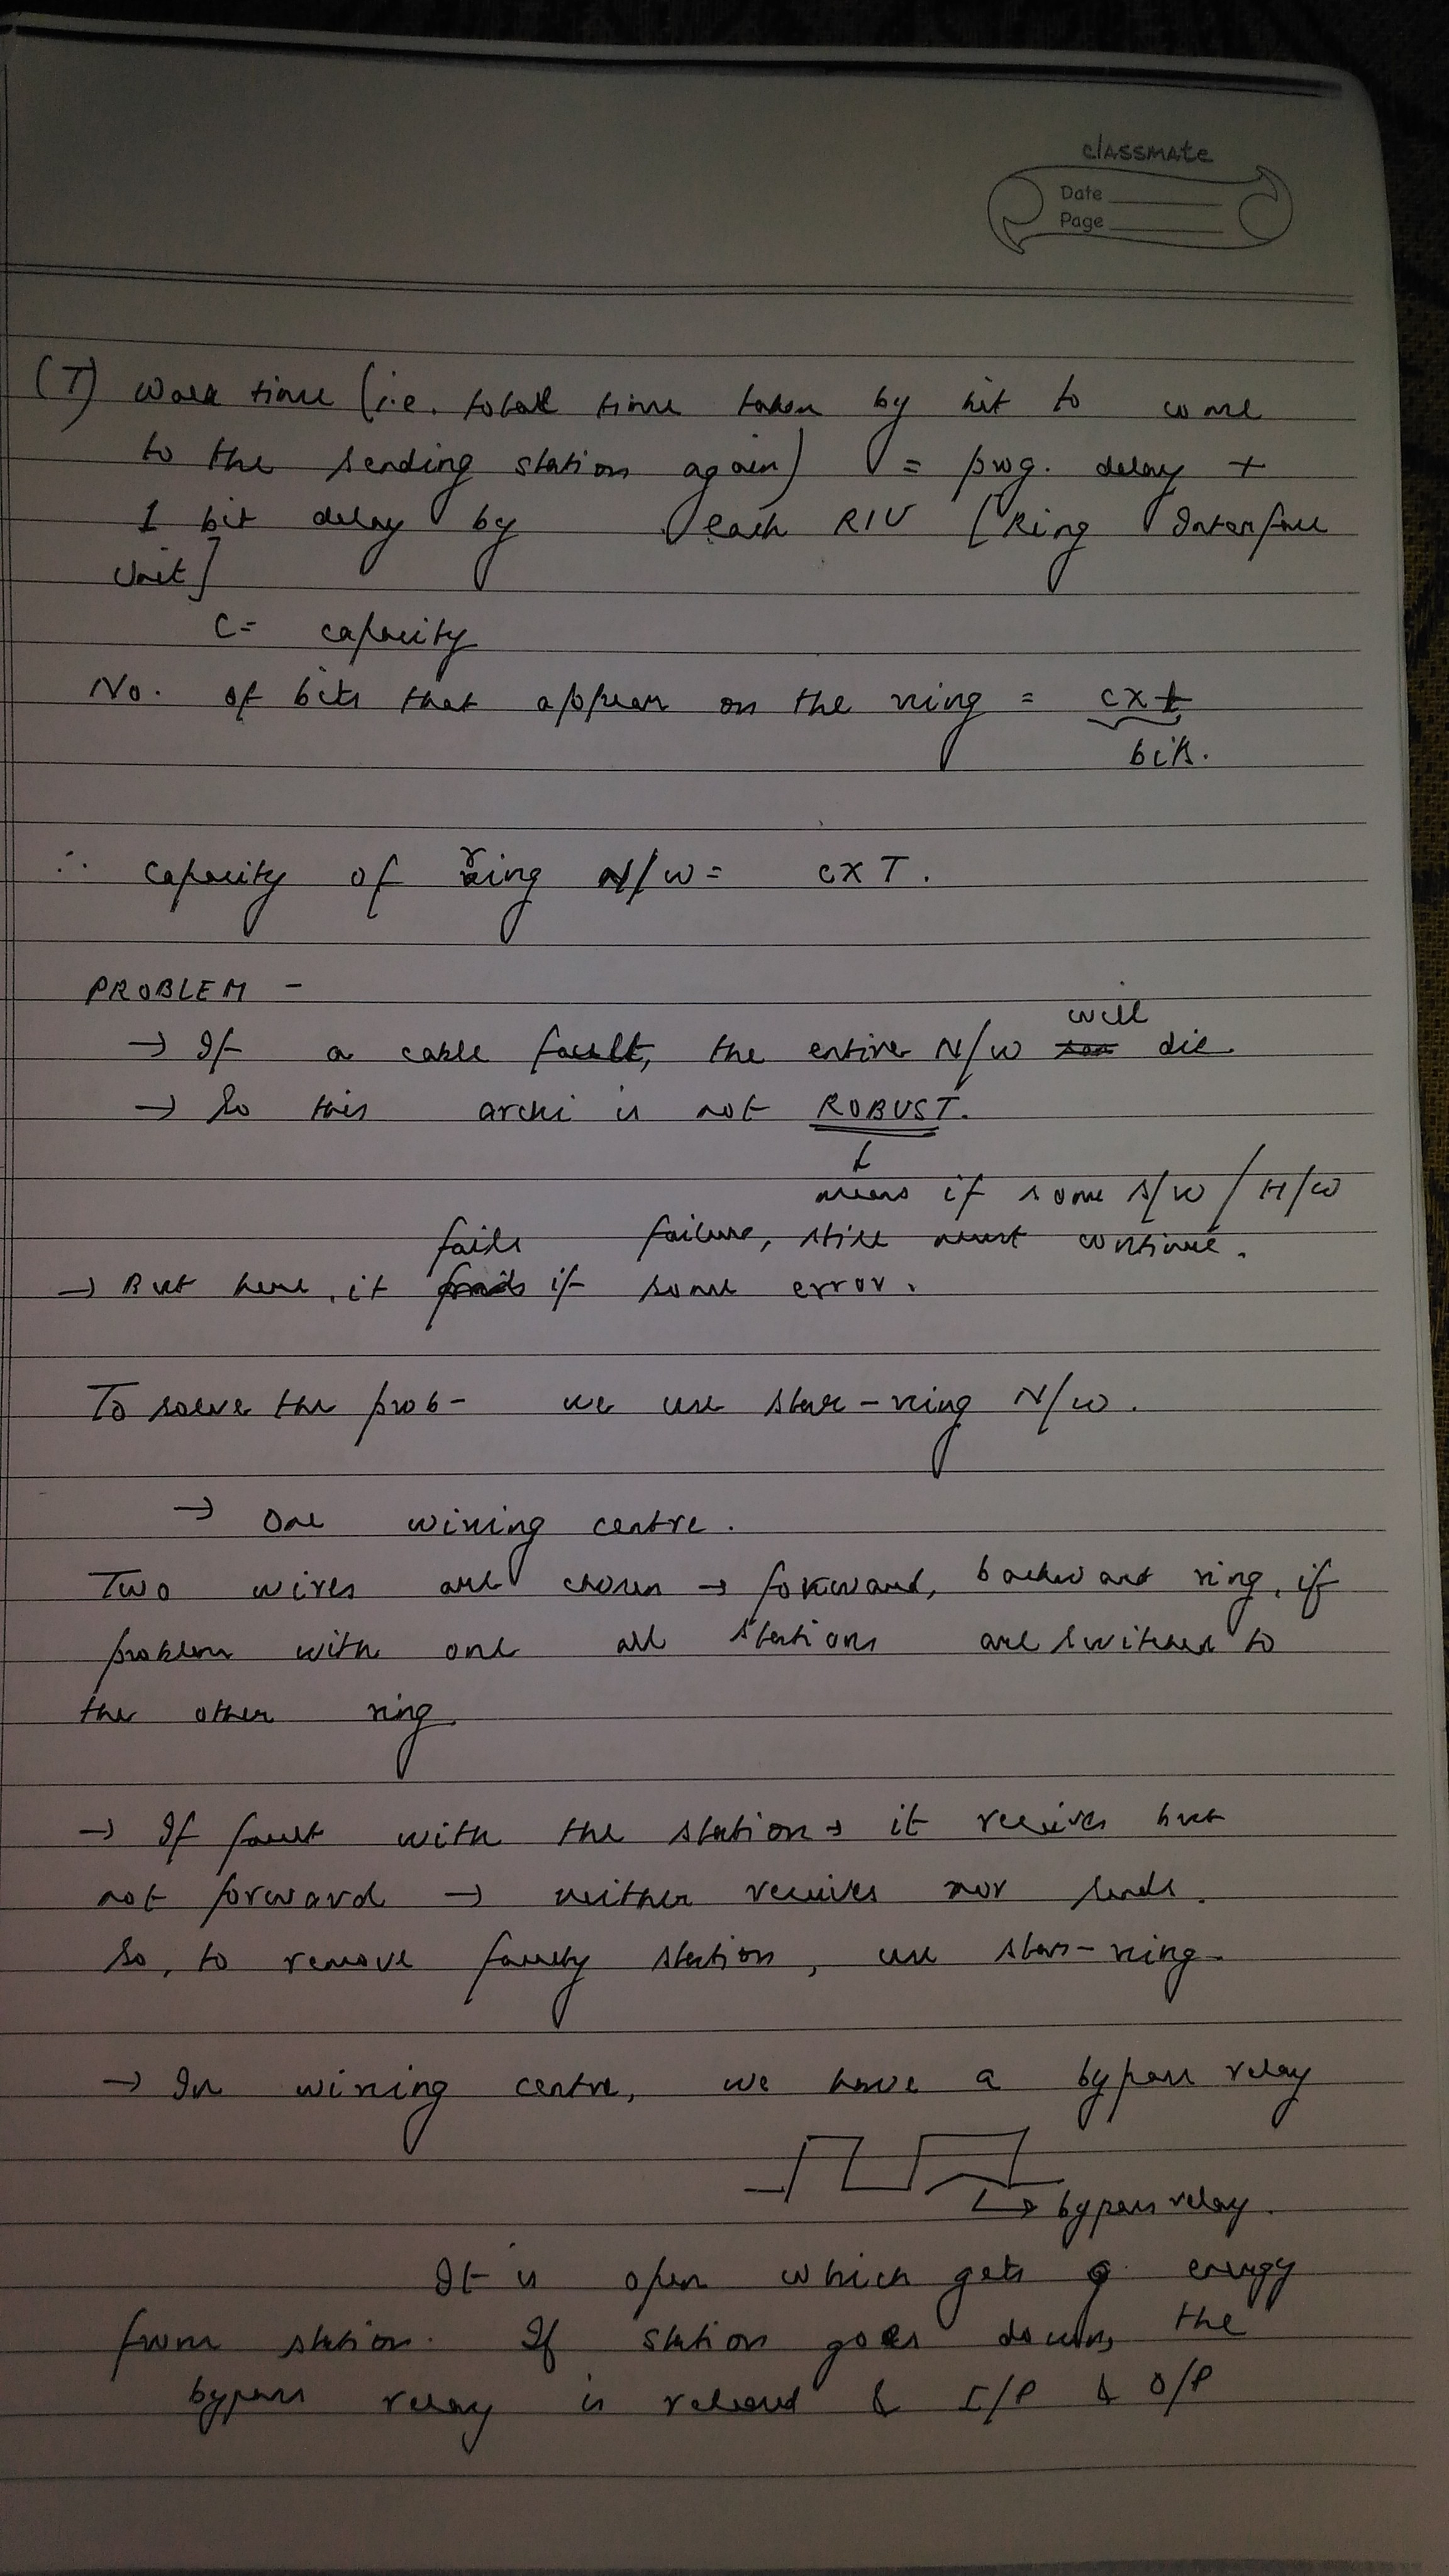 classmate
Date
Page
(T) Walk time (i.e. total time taken by bit to come
to the sending station again) = prog. delay +
1 bit delay by each RIU [Ring Interface
Unit]
C = capacity
No. of bits that appear on the ring = c x t
bits.
∴ Capacity of ring N/W = c x T.
PROBLEM -
→ If a cable fault, the entire N/W will die.
→ So this archi is not ROBUST.
means if some S/W / H/W
failure, still must continue.
→ But here, it fails if some error.
To solve the prob - we use star-ring N/W.
→ One wiring centre.
Two wires are chosen → forward, backward ring, if
problem with one all stations are switched to
the other ring
→ If fault with the station → it receives but
not forward → neither receives nor sends.
So, to remove faulty station, use star-ring.
→ In wiring centre, we have a bypass relay
↳ bypass relay.
It is open which gets energy
from station. If station goes down, the
bypass relay is released & I/P & O/P